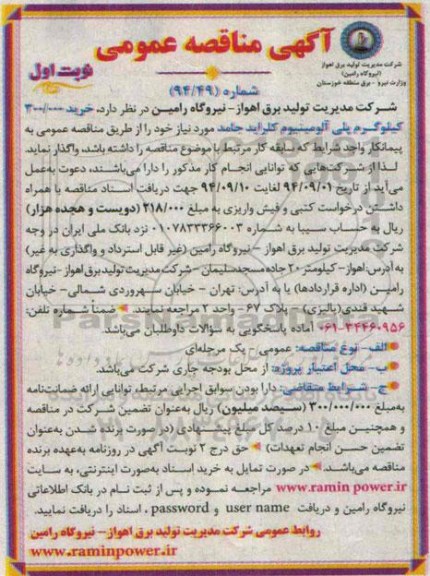 آگهی مناقصه عمومی
شرکت مدیریت تولید برق اهواز
(نیروگاه رامین)
وزارت نیرو - برق منطقه خوزستان
نوبت اول
شماره (۹۴/۴۹)
شرکت مدیریت تولید برق اهواز- نیروگاه رامین در نظر دارد، خرید ۳۰۰/۰۰۰
کیلوگرم پلی آلومینیوم کلراید جامد مورد نیاز خود را از طریق مناقصه عمومی به
پیمانکار واجد شرایط که سابقه کار مرتبط با موضوع مناقصه را داشته باشد، واگذار نماید.
لـذا از شـرکت‌هایی که توانایی انجـام کار مذکور را دارا می‌باشـند، دعوت به‌عمل
می‌آید از تاریخ ۹۴/۰۹/۰۱ لغایت ۹۴/۰۹/۱۰ جهت دریافت اسناد مناقصه با همراه
داشـتن درخواست کتبی و فیش واریزی به مبلغ ۲۱۸/۰۰۰ (دویست و هجده هزار)
ریال به حساب سیبا به شماره ۰۱۰۷۸۳۳۳۶۶۰۰۳ نزد بانک ملی ایران در وجه
شرکت مدیریت تولید برق اهواز - نیروگاه رامین (غیر قابل استرداد و واگذاری به غیر)
به آدرس: اهواز- کیلومتر ۲۰ جاده مسجد سلیمان - شرکت مدیریت تولید برق اهواز - نیروگاه
رامیـن (اداره قراردادها) یا به آدرس: تهران - خیابان سـهروردی شـمالی- خیابان
شهید قندی (پالیزی) - پلاک ۴۷ - واحد ۲ مراجعه نمایند. ضمناً شماره تلفن:
۰۶۱-۳۴۴۶۰۹۵۶ آماده پاسخگویی به سؤالات داوطلبان می‌باشد.
الف- نوع مناقصه: عمومی - یک مرحله‌ای
ب- محل اعتبار پروژه: از محل بودجه جاری شرکت می‌باشد.
ج- شـرایط متقاضی: دارا بودن سوابق اجرایی مرتبط، توانایی ارائه ضمانت‌نامه
به‌مبلغ ۳۰۰/۰۰۰/۰۰۰ (سـیصد میلیون) ریال به‌عنوان تضمین شـرکت در مناقصه
و همچنیـن مبلغ ۱۰ درصد کل مبلغ پیشـنهادی (در صورت برنده شـدن به‌عنوان
تضمین حسن انجام تعهدات) حق درج ۲ نوبت آگهی در روزنامه به‌عهده برنده
مناقصه می‌باشـد. در صورت تمایل به خرید اسـناد به‌صورت اینترنتی، به سـایت
www.ramin power.ir مراجعه نموده و پس از ثبت نـام در بانک اطلاعاتی
نیروگاه رامین و دریافت user name و password، اسناد را دریافت نمایید.
روابط عمومی شرکت مدیریت تولید برق اهواز- نیروگاه رامین
www.raminpower.ir